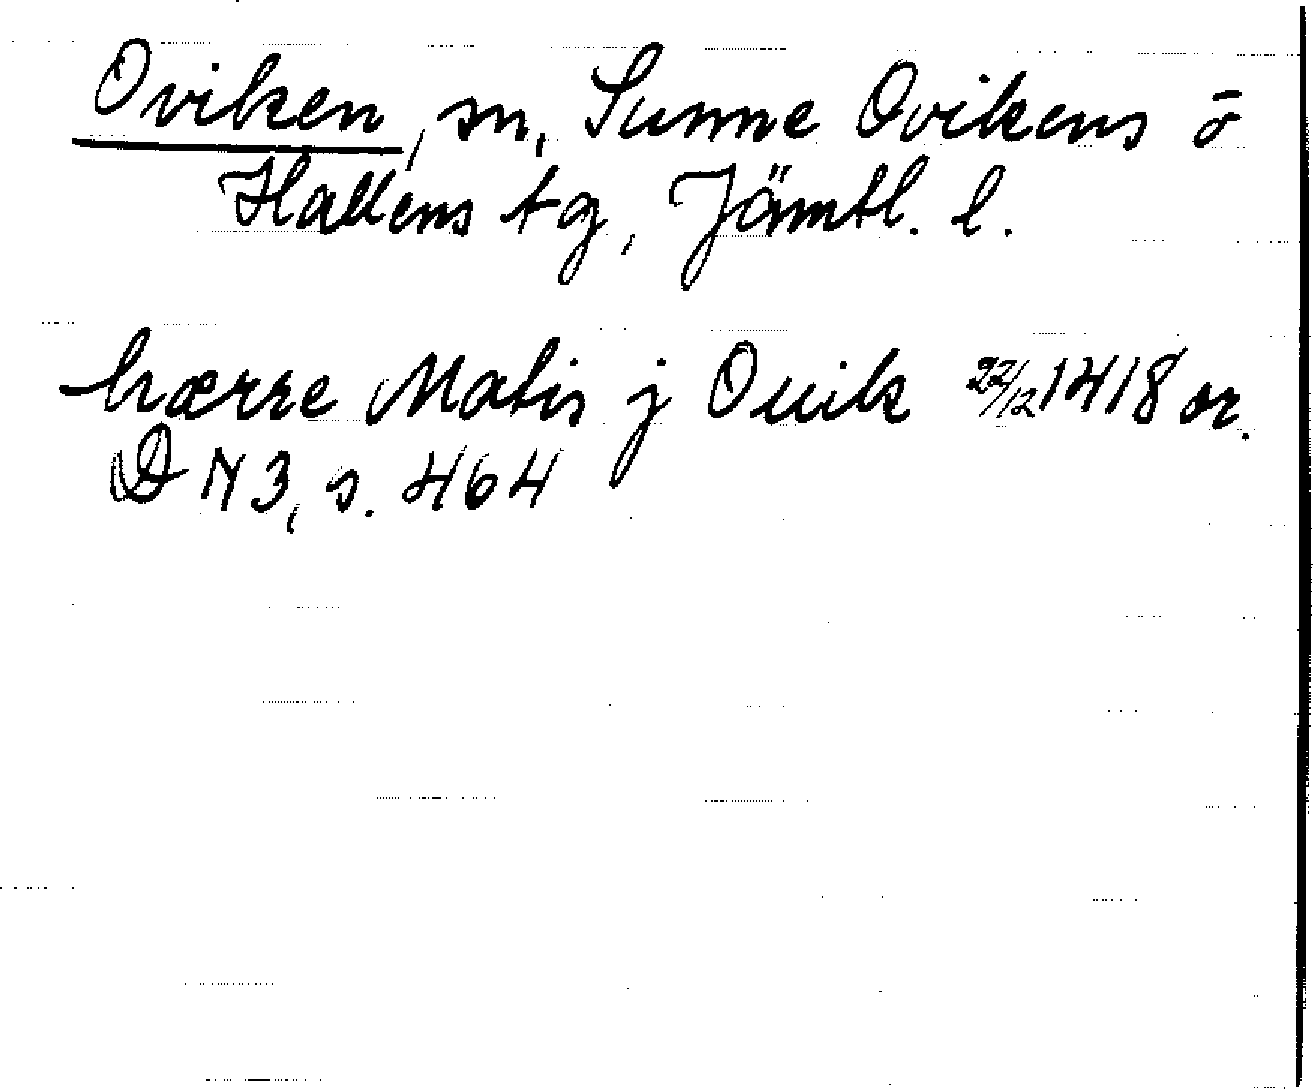 Oviken, sn, Sunne Ovikens o
Hallens tg, Jämtl. l.
hærre Matis j Ouik 22/12 1418 or.
DN 3, s. 464